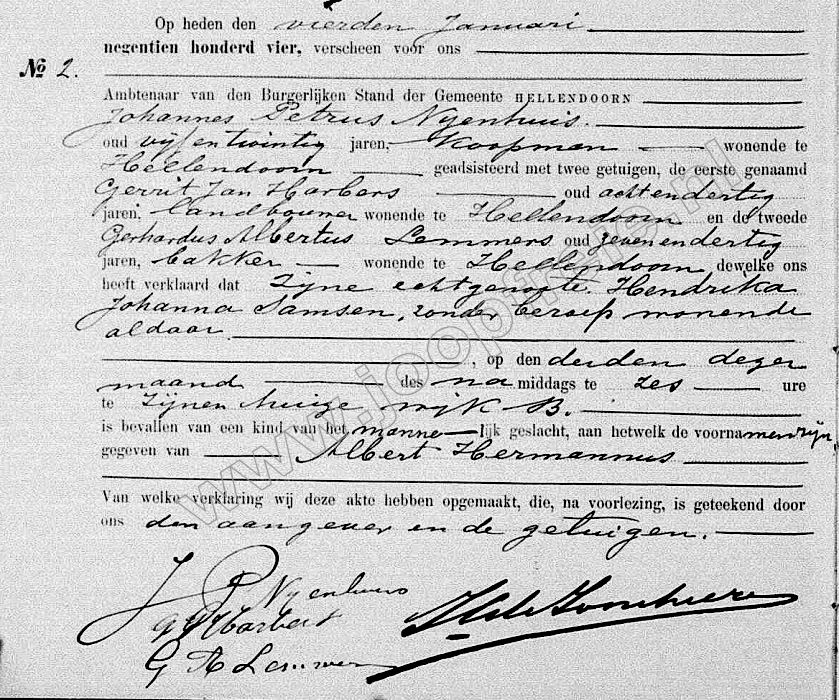 Op heden den vierden Januari
negentien honderd vier, verscheen voor ons
No 2.
Ambtenaar van den Burgerlijken Stand der Gemeente HELLENDOORN
Johannes Petrus Nijenhuis.
oud vijfentwintig jaren, Koopman wonende te
Hellendoorn geadsisteerd met twee getuigen, de eerste genaamd
Gerrit Jan Harbers oud achtendertig
jaren, landbouwer wonende te Hellendoorn en de tweede
Gerhardus Albertus Lemmers oud zevenendertig
jaren, bakker wonende te Hellendoorn dewelke ons
heeft verklaard dat Zijne echtgenoote, Hendrika
Johanna Samsen, zonder beroep wonende
aldaar.
, op den derden dezer
maand des na middags te zes ure
te Zijnen huize wijk B.
is bevallen van een kind van het manne-lijk geslacht, aan hetwelk de voornamen zijn
gegeven van Albert Hermannus
Van welke verklaring wij deze akte hebben opgemaakt, die, na voorlezing, is geteekend door
ons den aangever en de getuigen.
J P Nijenhuis
G J Harbers
G A Lemmers
www.joopfietje.nl